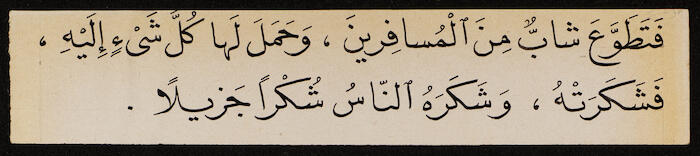 فَتَطَوَّعَ شابٌّ مِنَ ٱلْمُسافِرينَ ، وَحَمَلَ لَها كُلَّ شَىْءٍ إِلَيْهِ ،
فَشَكَرَتْهُ ، وَشَكَرَهُ ٱلنّاسُ شُكْراً جَزيلًا .